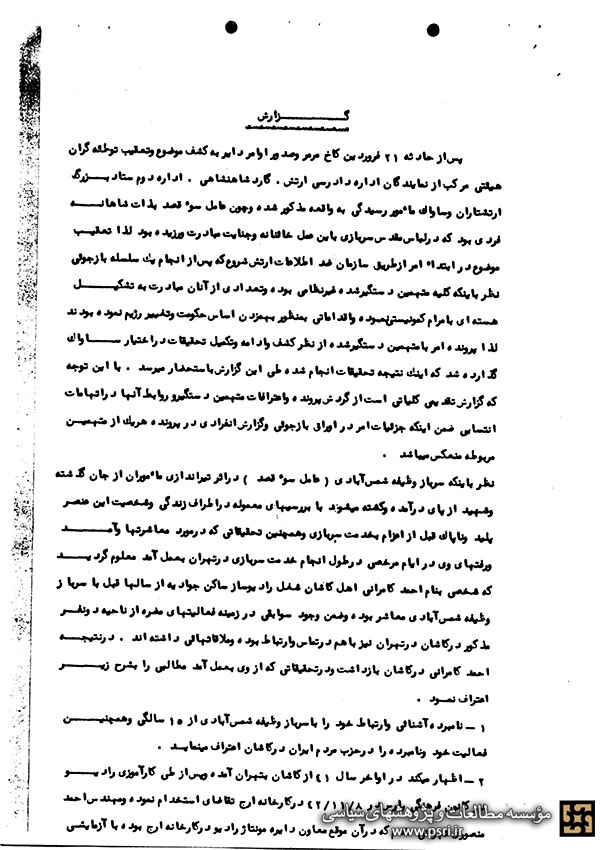 گزارش
پس از حادثه ۲۱ فروردین کاخ مرمر وصدور اوامر دایر به کشف موضوع وتعقیب توطئه گران
هیئتی مرکب از نمایندگان اداره دادرسی ارتش . گارد شاهنشاهی . اداره دوم ستاد بزرگ
ارتشتاران وساواک مأمور رسیدگی به واقعه مذکور شده وچون عامل سوء قصد بذات شاهانه
فردی بود که در لباس مقدس سربازی باین عمل خائنانه وجنایت مبادرت ورزیده بود لذا تعقیب
موضوع در ابتداء امر از طریق سازمان ضد اطلاعات ارتش شروع که پس از انجام یک سلسله بازجوئی
نظر باینکه کلیه متهمین دستگیر شده غیرنظامی بوده وتعدادی از آنان مبادرت به تشکیل
هسته ای با مرام کمونیستی نموده واقداماتی بمنظور بهمزدن اساس حکومت وتغییر رژیم نموده بودند
لذا پرونده امر با متهمین دستگیر شده از نظر کشف وادامه وتکمیل تحقیقات در اختیار ساواک
گذارده شد که اینک نتیجه تحقیقات انجام شده طی این گزارش باستحضار میرسد . با این توجه
که گزارش تقدیمی کلیاتی است از گردش پرونده واعترافات متهمین دستگیر و روابط آنها در اتهامات
انتسابی ضمن اینکه جزئیات امر در اوراق بازجوئی وگزارش انفرادی در پرونده هریک از متهمین
مربوطه منعکس میباشد .
نظر باینکه سرباز وظیفه شمس آبادی ( عامل سوء قصد ) در اثر تیراندازی مأموران از جان گذشته
وشهید از پای درآمده وکشته میشوند با بررسیهای معموله در اطراف زندگی وشخصیت این عنصر
پلید وناپاک قبل از اعزام بخدمت سربازی وهمچنین تحقیقاتی که در مورد معاشرتها وآمد
ورفتهای وی در ایام مرخصی در طول انجام خدمت سربازی در تهران بعمل آمد معلوم گردید
که شخصی بنام احمد کامرانی اهل کاشان شغل رادیوساز ساکن جوادیه از سالها قبل با سرباز
وظیفه شمس آبادی معاشر بوده وضمن وجود سوابقی در زمینه فعالیتهای مضره از ناحیه دو نفر
مذکور در کاشان در تهران نیز باهم در تماس وارتباط بوده وملاقاتهائی داشته اند . در نتیجه
احمد کامرانی در کاشان بازداشت ودر تحقیقاتی که از وی بعمل آمد مطالبی را بشرح زیر
اعتراف نمود .
۱ – نامبرده آشنائی وارتباط خود را با سرباز وظیفه شمس آبادی از ۱۵ سالگی وهمچنین
فعالیت خود ونامبرده را در حزب مردم ایران در کاشان اعتراف مینماید .
۲ – اظهار میکند در اواخر سال ۴۱ از کاشان بتهران آمده وپس از طی کارآموزی رادیو
کانون فرهنگی پارس در ۴۲/۱۱/۸ در کارخانه ارج تقاضای استخدام نموده ومهندس احمد
منصوری که در آن موقع معاون دایره مونتاژ رادیو در کارخانه ارج بوده با آزمایشی
مؤسسه مطالعات و پژوهشهای سیاسی
www.psri.ir